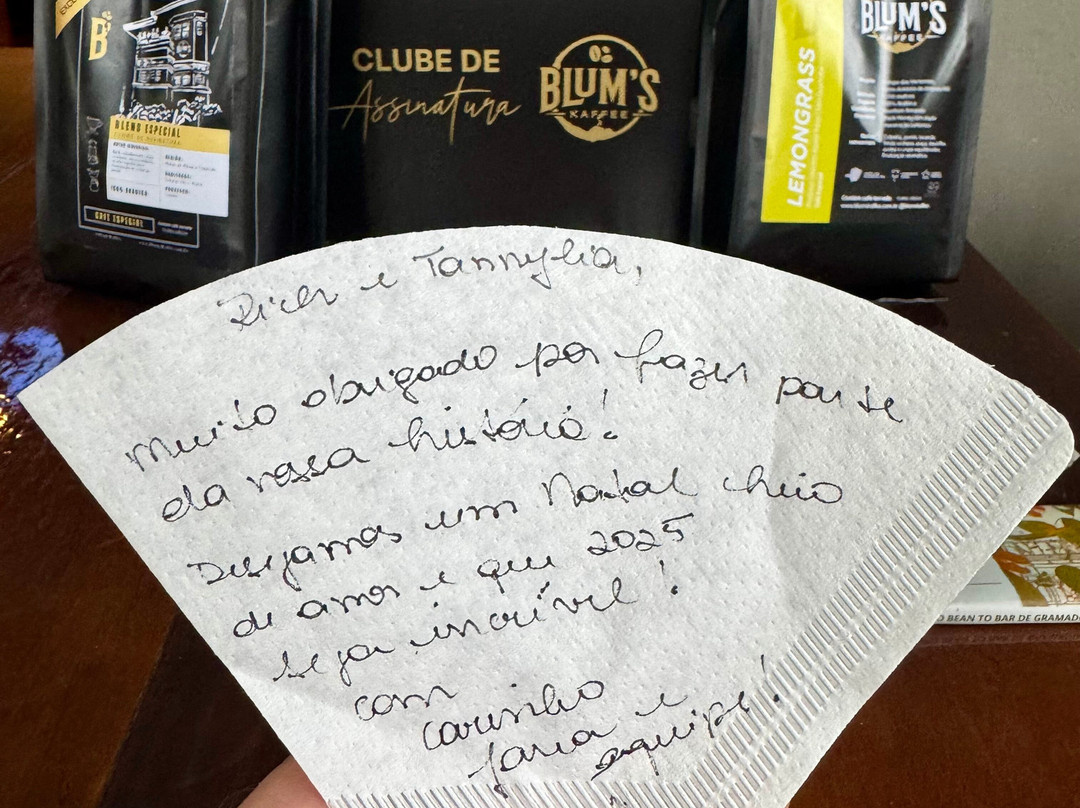 B
BLEND ESPECIAL
CLUBE DE ASSINATURA
100% ARÁBICA
CAFÉ ESPECIAL
CLUBE DE
Assinatura
BLUM'S
KAFFEE
LEMONGRASS
BLUM'S
KAFFEE
e Tannylia,
Muito obrigado por fazer parte
da nossa história!
Desejamos um Natal cheio
de amor e que 2025
seja incrível!
com
carinho
e
equipe!
BEAN TO BAR DE GRAMADO